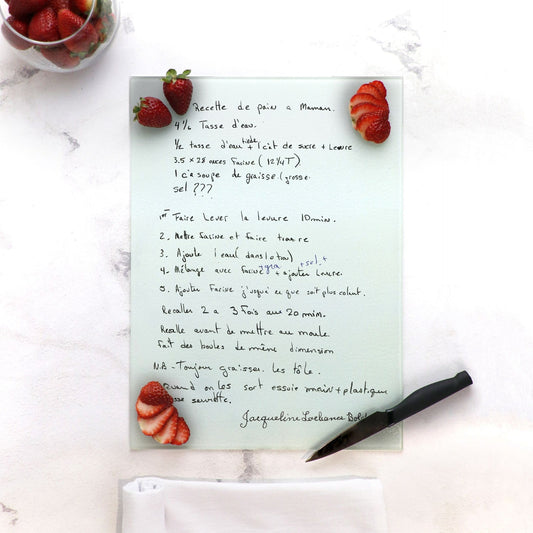 Recette de pain a Maman.
4½ Tasse d'eau.
½ tasse d'eau tiède + 1 c. à t. de sucre + Levure
3.5 x 28 onces Farine (12¼ T)
1 c a soupe de graisse. (grosse.
sel ???
1er Faire Lever la levure 10 min.
2. Mettre farine et faire
3. Ajoute l'eau (dans
+ gra + sel +
4. Mélange avec Farine + ajouter Levure.
5. Ajouter Farine j'usqué ce que soit plus colent.
Recaller 2 a 3 fois aux 20 min.
Recalle avant de mettre au moule
fait des boules de même dimension
N.B - Toujour graisser les tôle.
Quand on les sort essuie main + plastique
serviette.
Jacqueline